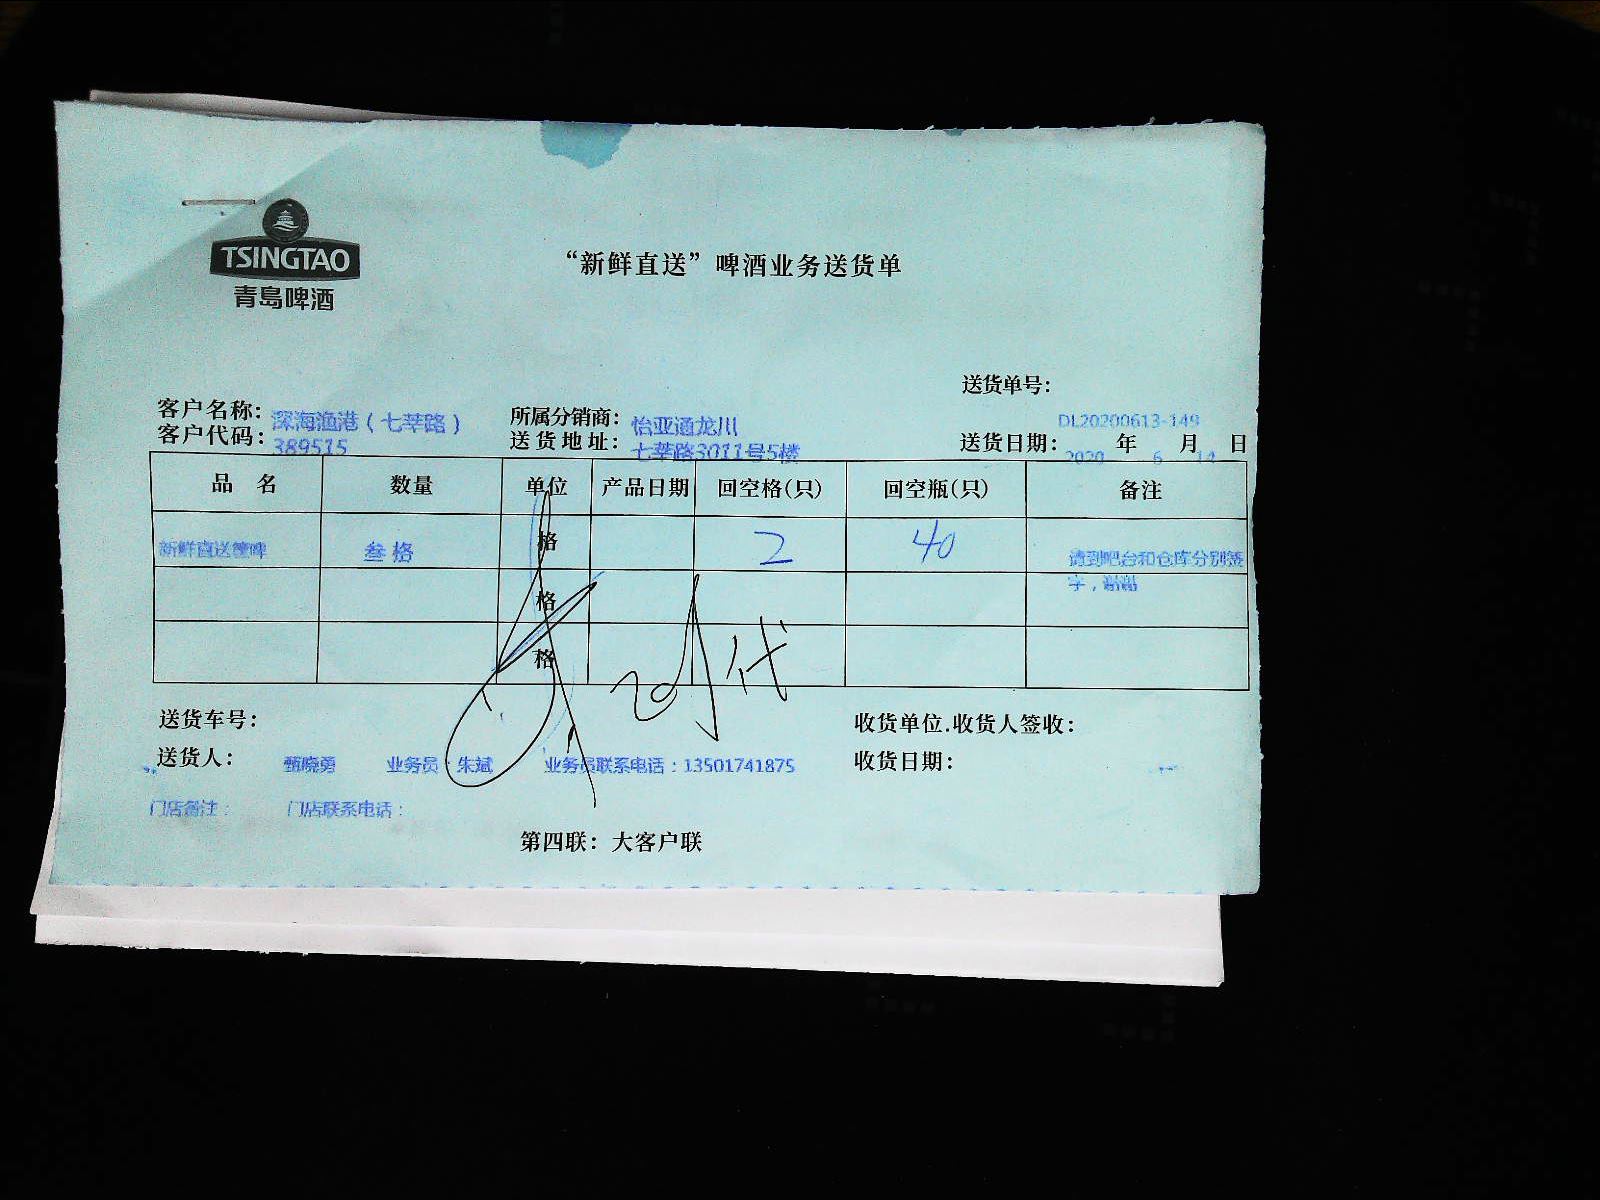 TSINGTAO
青岛啤酒
“新鲜直送”啤酒业务送货单
送货单号：
DL20200613-149
客户名称：深海渔港（七莘路） 所属分销商：怡亚通龙川
客户代码：389515 送货地址：七莘路3011号5楼 送货日期：2020年6月14日
品 名 数量 单位 产品日期 回空格(只) 回空瓶(只) 备注
新鲜直送箜啤 叁格 格 2 40 请到吧台和仓库分别签字，谢谢
格
格
代
送货车号： 收货单位.收货人签收：
送货人： 甄晓勇 业务员：朱斌 业务员联系电话：13501741875 收货日期：
门店备注： 门店联系电话：
第四联：大客户联